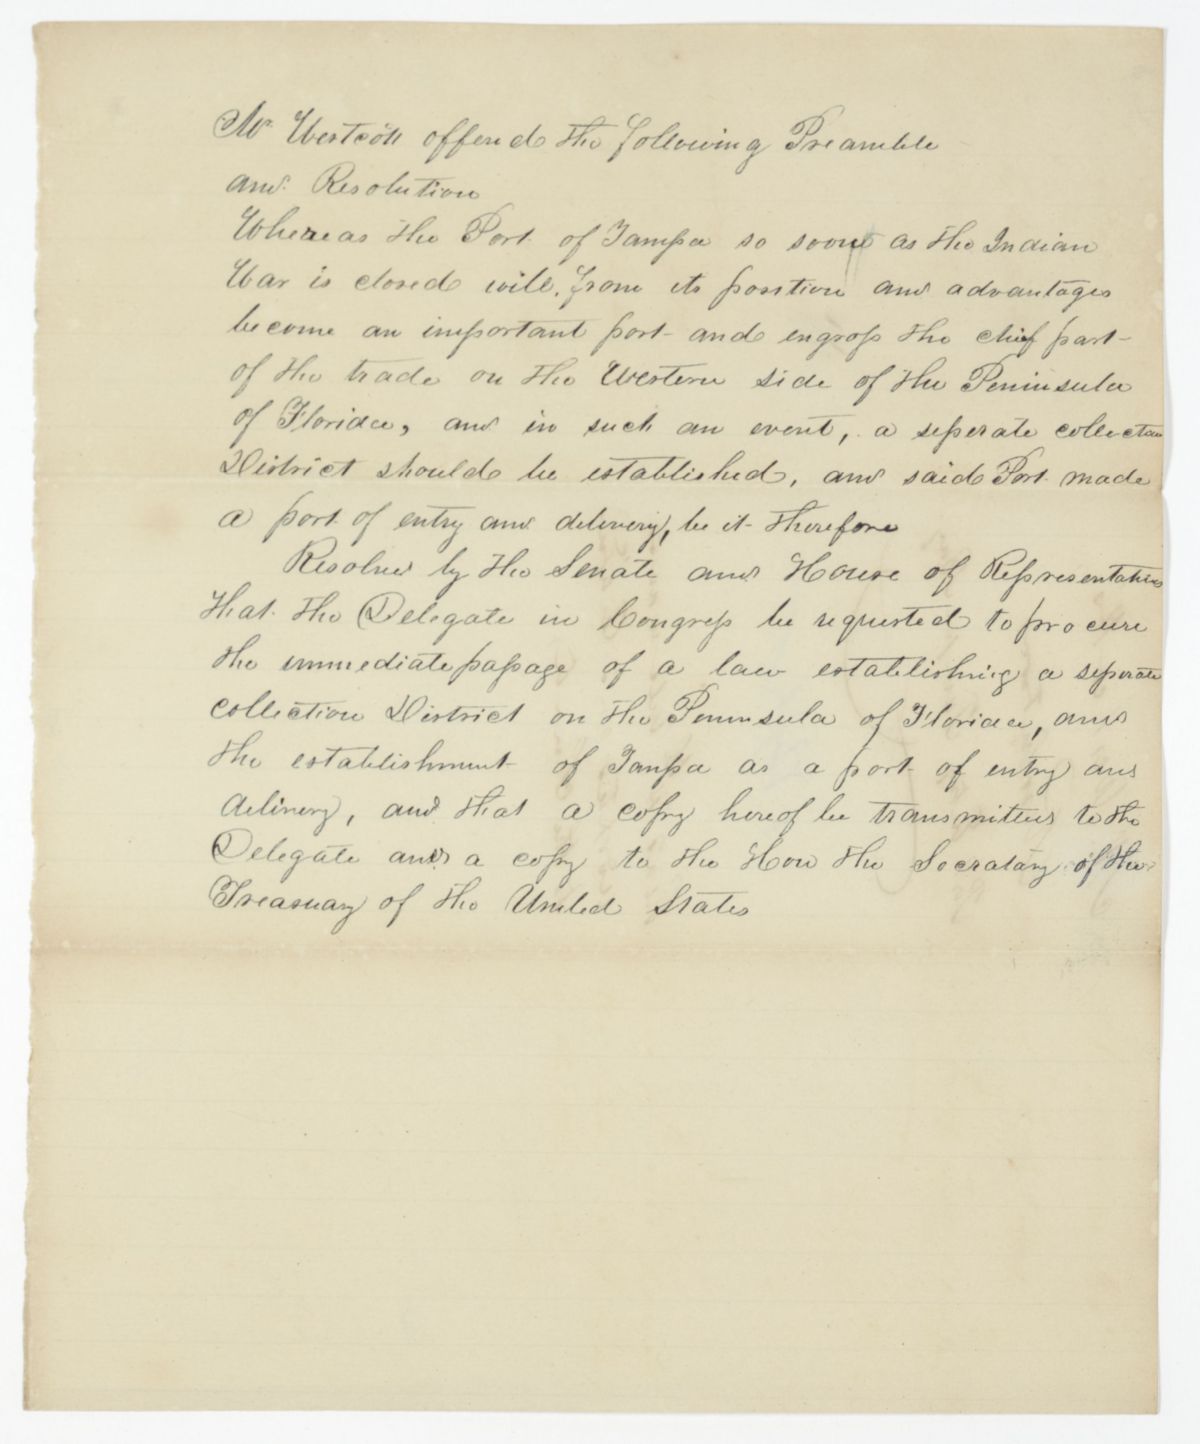 Mr Westcott offered the following Preamble
and Resolution
Whereas the Port of Tampa so soon as the Indian
War is closed will, from its position and advantages
become an important port and engross the chief part
of the trade on the Western side of the Peninsula
of Florida, and in such an event, a seperate collection
District should be established, and said Port made
a port of entry and delivery, be it therefore
Resolved by the Senate and House of Representatives
that the Delegate in Congress be requested to procure
the immediate passage of a law establishing a seperate
collection District on the Peninsula of Florida, and
the establishment of Tampa as a port of entry and
delivery, and that a copy hereof be transmitted to the
Delegate and a copy to the Hon the Secratary of the
Treasuary of the United States